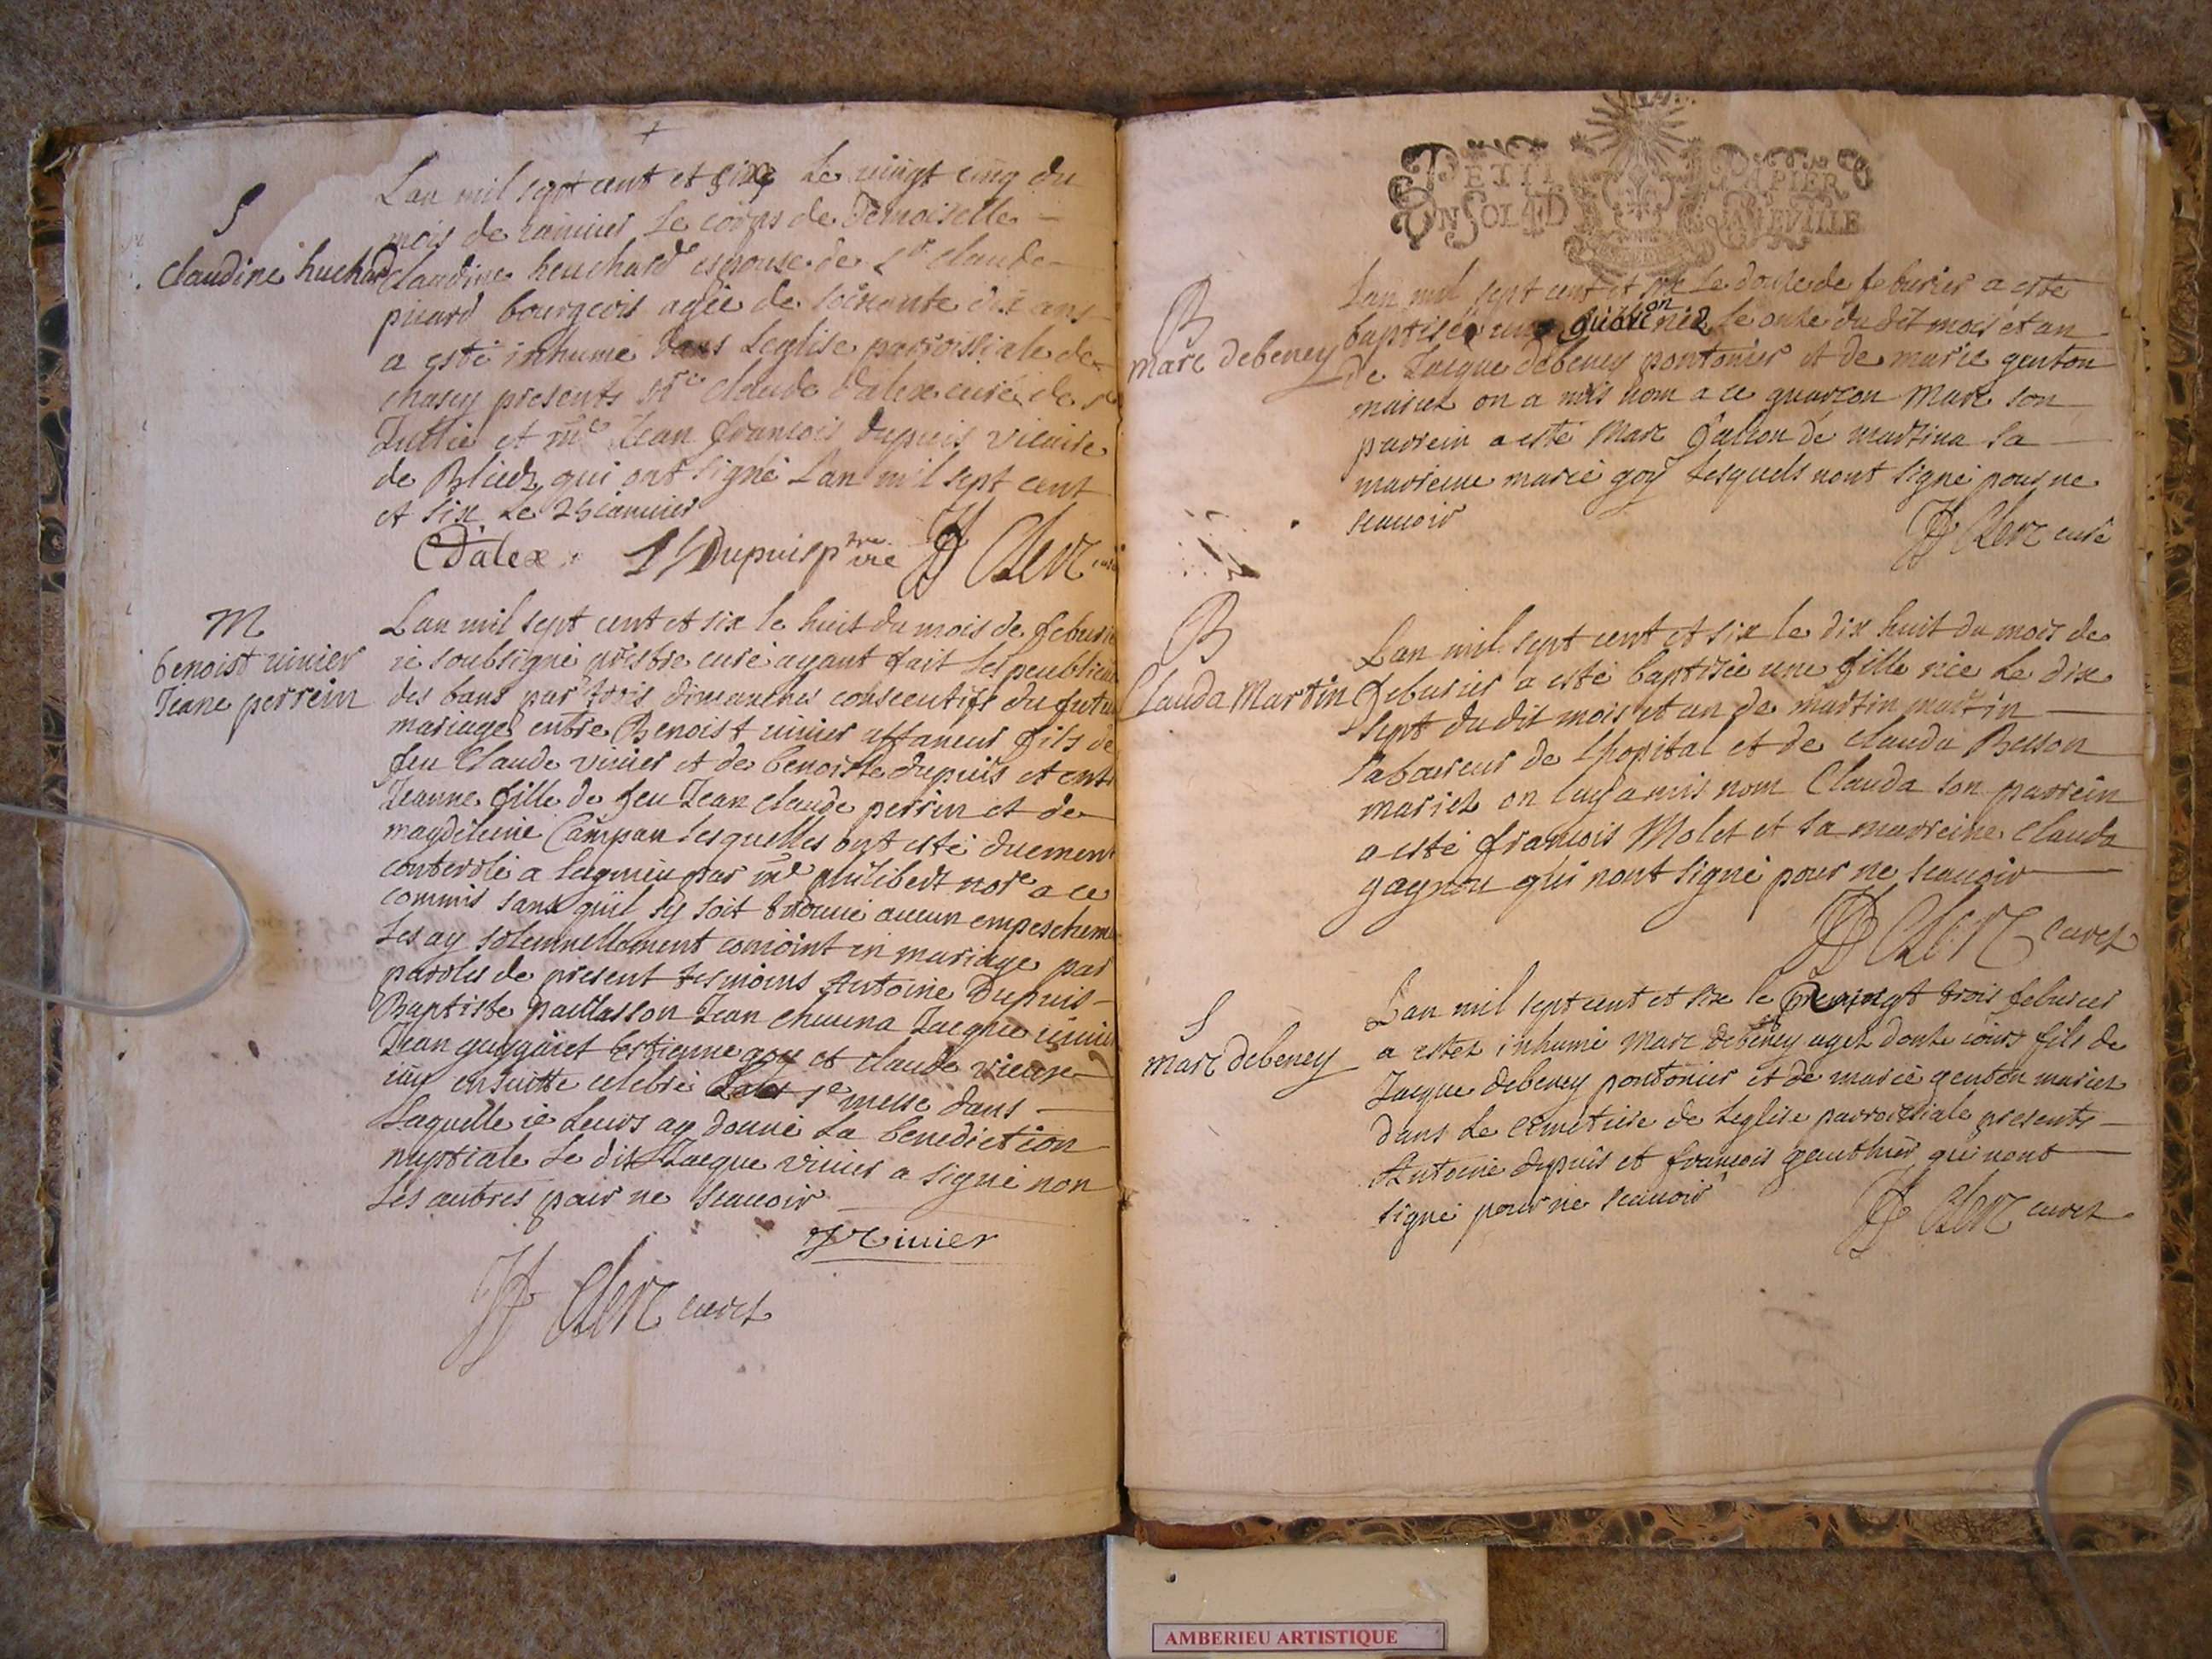 S
Claudine huchard
Lan mil sept cent et six Le vingt cinq du
mois de ianuier Le corps de Demoiselle
Claudine heuchard espouse de Sr Claude
picard bourgeois agée de soixante dix ans
a esté inhumé dans Leglise parroissiale de
chasey presents Mre Claude Dalex curé de St
Jullie et Mre Jean francois dupuis vicaire
de Blied qui ont signé Lan mil sept cent
et six Le 25 ianuier
CDalex Dupuis ptre vic Clerc curé
M
benoist uinier
Jeane perrein
Lan mil sept cent et six le huit du mois de feburie
ie soubsigné prestre curé ayant fait les peublica
des bans par trois dimanches consecutifs du futu
mariage entre Benoist uinier affaneur fils de
feu Claude vinier et de benoiste dupuis et entr
Jeanne fille de feu Jean Claude perrin et de
magdeleine Campan lesquelles ont esté duement
conterolé a lagnieu par Mre philibert nore a ce
commis sans quil sy soit trouué aucun empeschem
Les ay solemnellement conioint en mariage par
parolles de present tesmoins Antoine Dupuis
Baptiste paillasson Jean Chauna Jacque uinier
Jean guygaiet Estienne goy et claude vieux
iay ensuitte celebré la Ste messe dans
Laquelle ie Leurs ay donné La benediction
nuptiale Le dit Jacque vinier a signé non
Les autres pour ne scauoir
J Vinier
Clerc curez
PETIT PAPIER
UN SOL 4 D LA FEUILLE
B
Marc debeney
Lan mil sept cent et six Le douze de feburier a esté
baptisé un guarcon né Le onze du dit mois et an
de Jacque debeney pontonier et de marie genton
mariez on a mis nom a ce guarcon Marc son
parrein a esté Marc falcon de martina sa
marreine marie goy Lesquels nont signé pour ne
scauoir
Clerc curé
B
Clauda Martin
Lan mil sept cent et six le dix huit du mois de
feburier a esté baptisée une fille née Le dix
sept du dit mois et an de martin martin
laboureur de Lhopital et de clauda Besson
mariez on luy a mis nom Clauda son parrein
a esté francois Molet et sa marreine clauda
gagnou qui nont signé pour ne scauoir
Clerc curez
S
Marc debeney
Lan mil sept cent et six le vingt trois feburier
a estez inhumé Marc debeney agez donze iours fils de
Jacque debeney pontonier et de marie genton mariez
dans Le cemetiere de Leglise parroissiale presents
Antoine dupuis et francois gauthier qui nont
signé pour ne scauoir
Clerc curez
AMBERIEU ARTISTIQUE